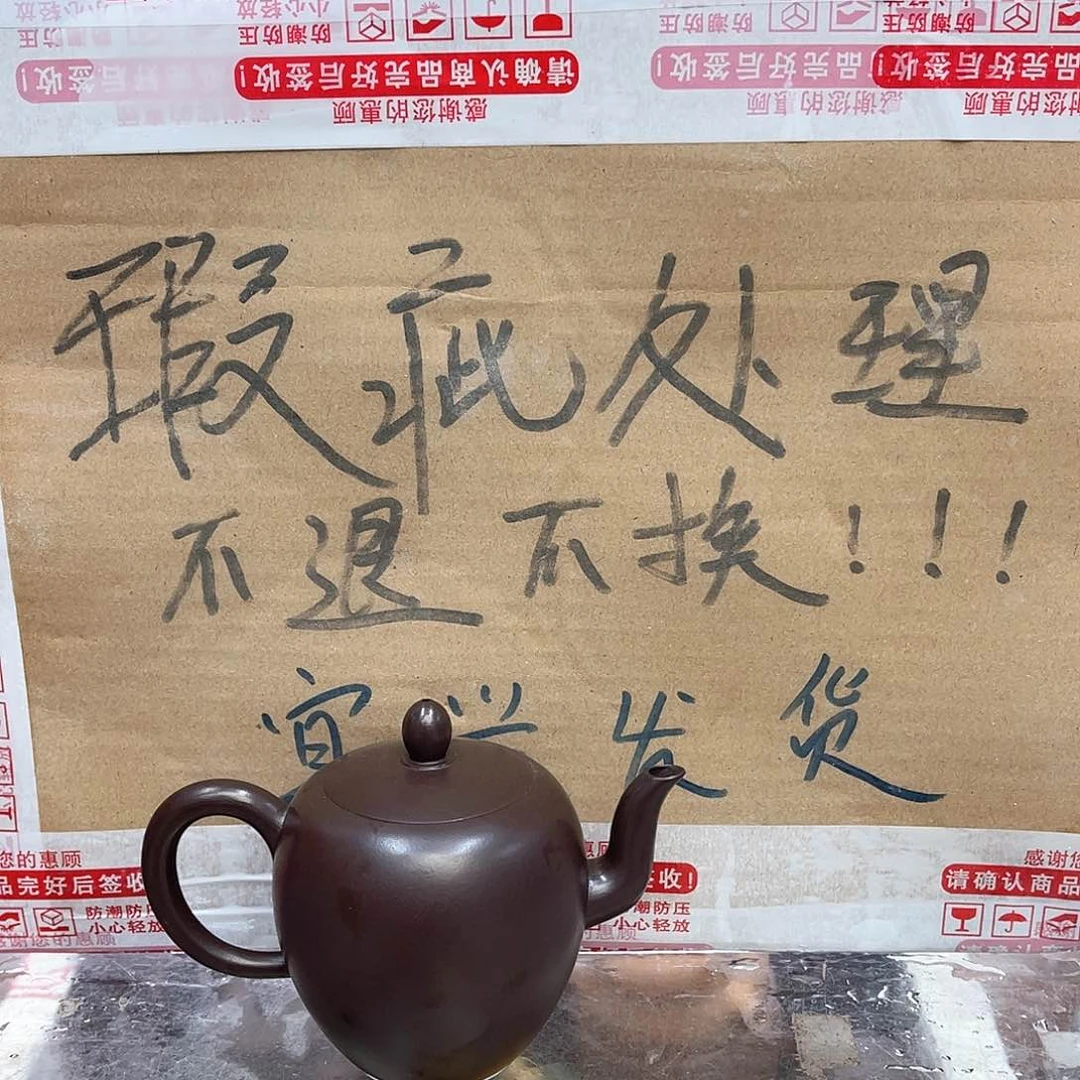 小心轻放
防潮防压
小心轻放
防潮防压
请确认商品完好后签收!
请确认商品完好后签收!
感谢您的惠顾
感谢您的惠顾
瑕疵处理
不退不换!!!
宜兴发货
您的惠顾
品完好后签收
防潮防
小心轻放
感谢您的惠顾
收!
潮防压
小心轻放
感谢您
请确认商品